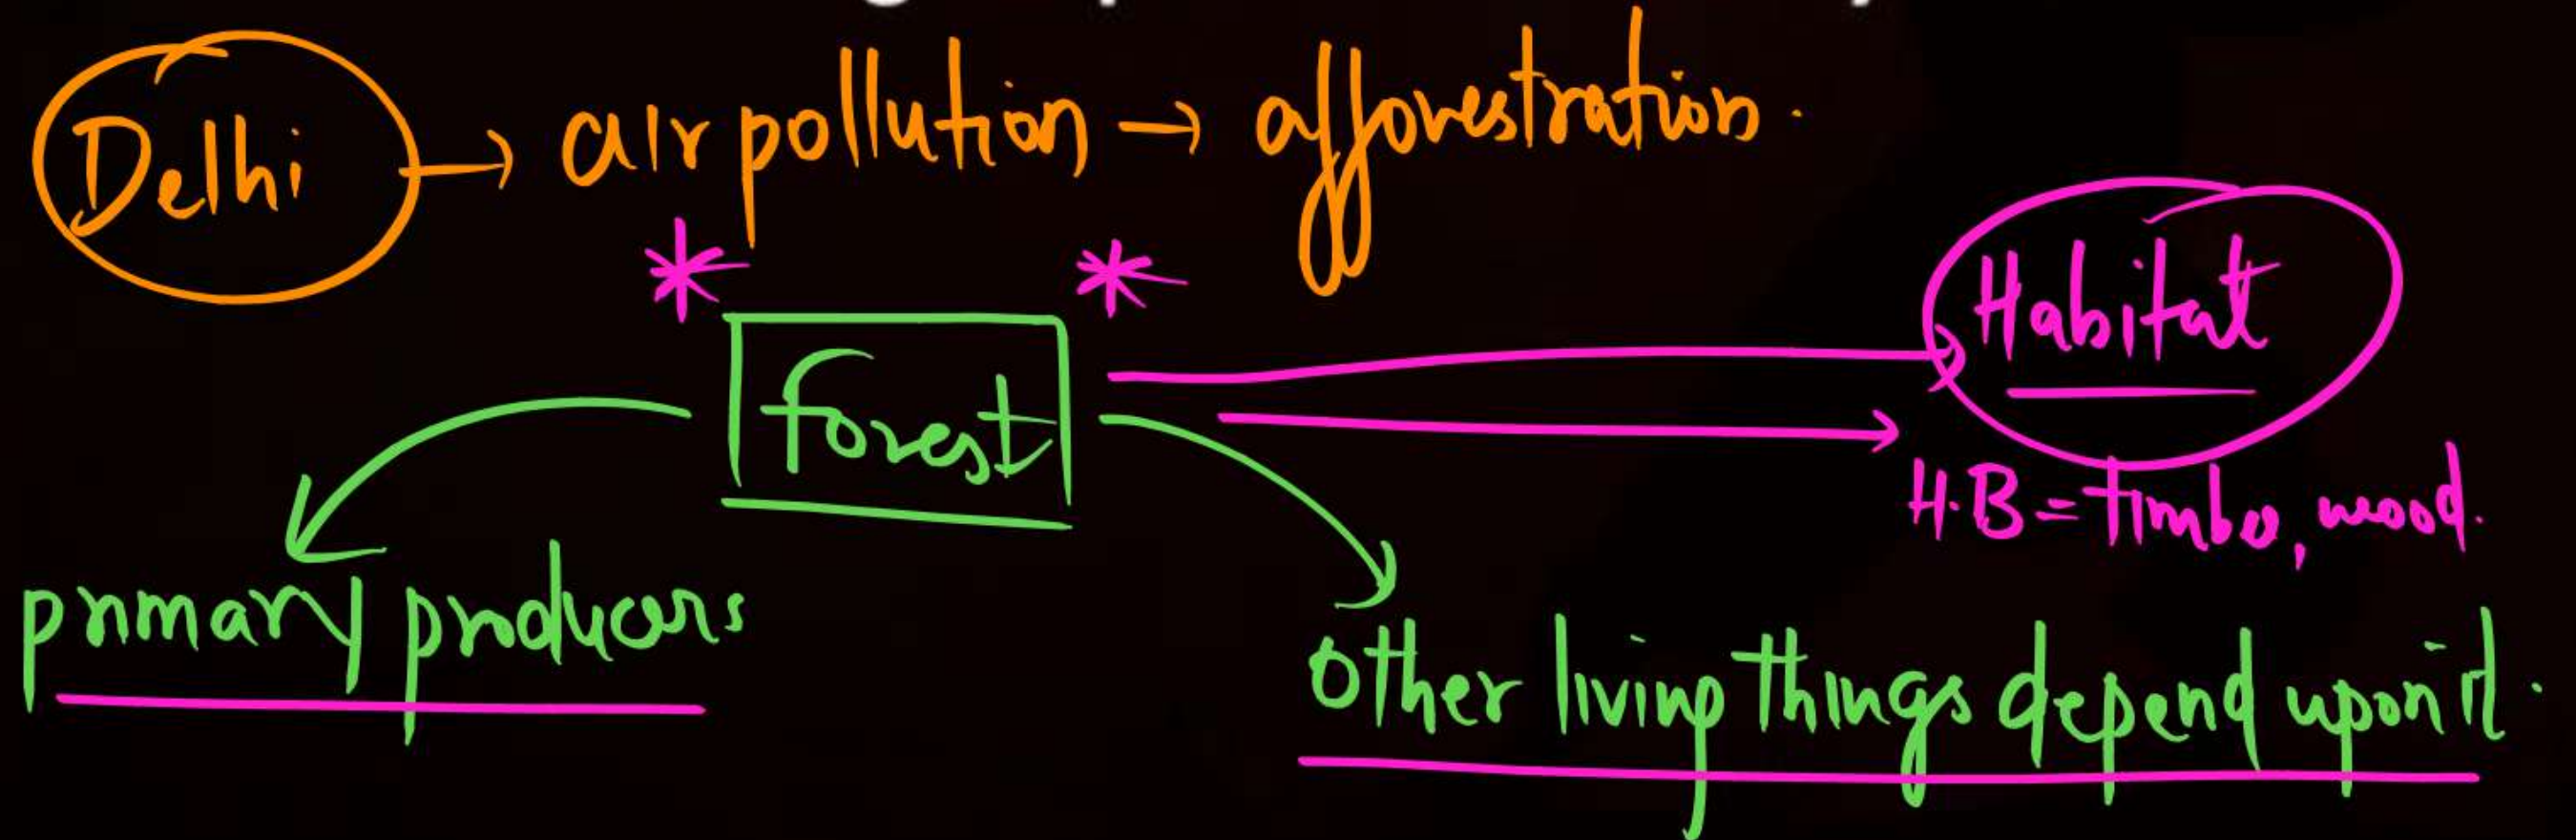 Delhi → air pollution → afforestration.
* *
forest
Habitat
H.B = Timber, wood.
primary producers
Other living things depend upon it.